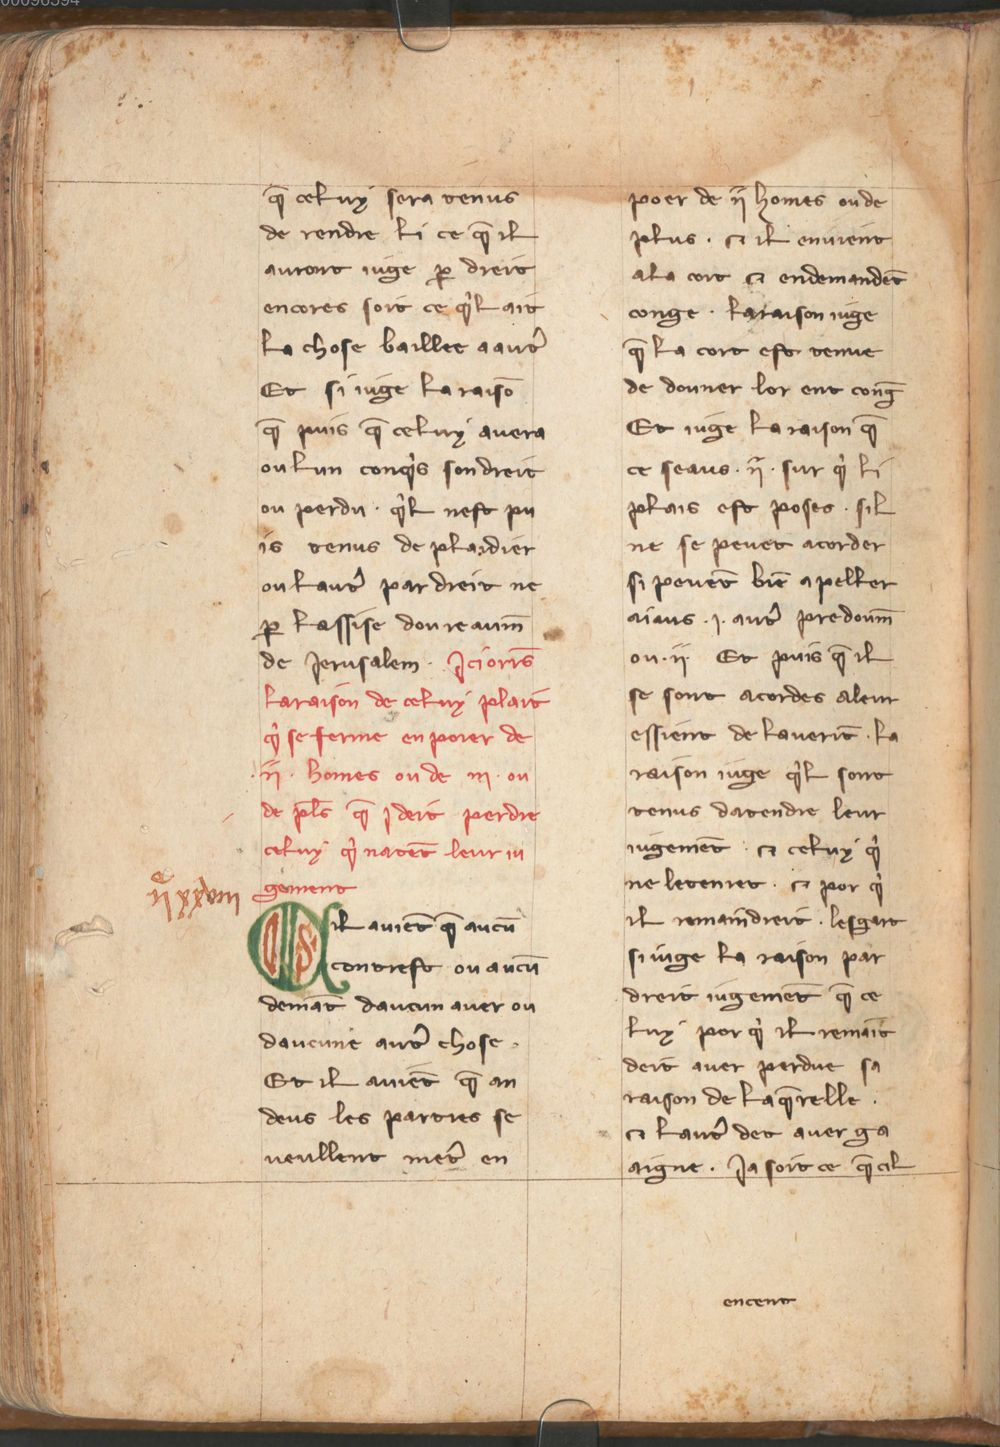 00096594
q̄ celuy sera tenus
de rendre li ce q̄ il
auront iuge ꝑ dreit
encores soit ce qͥl ait
la chose baillee a autͬ
Et si iuge la raisō
q̄ puis q̄ celuy auera
ou lun conqͥs son dreit
ou perdu · qͥl nest pu
is tenus de plaidier
ou lautͬ par dreit ne
ꝑ lassise dou reaum̄
de Jerusalem · Jci orrēs
la raison de celuy plait
qͥ se ferme en poier de
·ii· homes ou de iii· ou
de pl̄s q̄ i deit perdre
celuy qͥ natēt leur iu
gement
S'il auiēt q̄ aucū
contrest ou aucū
demāt daucun auer ou
daucune autͬ chose ·
Et il auiēt q̄ an
deus les parties se
ueullent metͬ en
poer de ii homes ou de
plus · ⁊ il enuient
a la cort ⁊ en demandēt
conge · la raison iuge
q̄ la cort est tenue
de douner lor ent conḡ
Et iuge la raison q̄
ce seaus · ii · sur qͥ li
plais est poses · sil
ne se peuet acorder
si peuēt biē apeller
aiaus · i · autͬ predoum̄
ou · ii · Et puis q̄ il
se sont acordes a leur
essient de la uerit̄ · la
raison iuge qͥl sont
tenus datendre leur
iugemēt · ⁊ celuy qͥ
ne le tenret · ⁊ por qͥ
il remaindreit · lesgart
si iuge la raison par
dreit iugemēt q̄ ce
luy por qͥ il remait
deit auer perdue sa
raison de la q̄relle ·
⁊ lautͬ det auer ga
aigne · Ja soit ce q̄ cil
encent